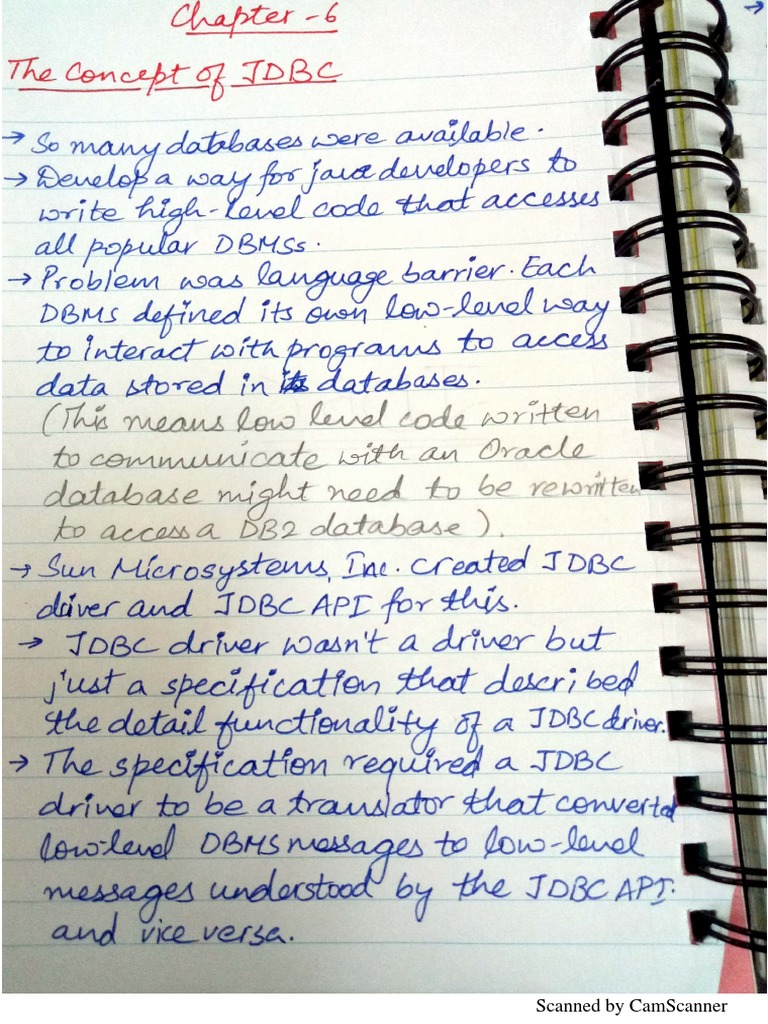 Chapter-6
The Concept of JDBC
→ So many databases were available.
→ Develop a way for java developers to
write high-level code that accesses
all popular DBMSs.
→ Problem was language barrier. Each
DBMS defined its own low-level way
to interact with programs to access
data stored in its databases.
(This means low level code written
to communicate with an Oracle
database might need to be rewritten
to access a DB2 database).
→ Sun Microsystems, Inc. created JDBC
driver and JDBC API for this.
→ JDBC driver wasn't a driver but
just a specification that described
the detail functionality of a JDBC driver.
→ The specification required a JDBC
driver to be a translator that converted
low-level DBMS messages to low-level
messages understood by the JDBC API.
and vice versa.
Scanned by CamScanner